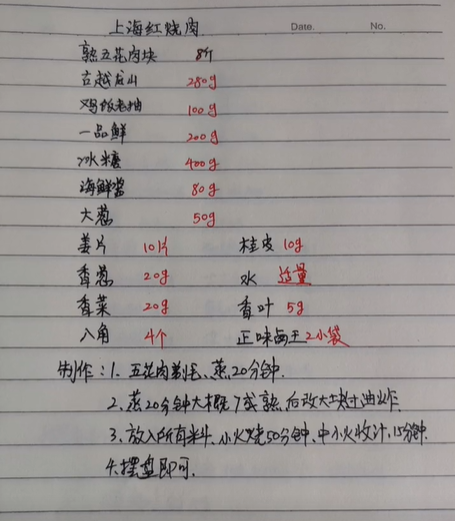 上海红烧肉
Date. No.
熟五花肉块 8斤
古越龙山 250g
鸡饭老抽 100g
一品鲜 200g
冰糖 400g
海鲜酱 80g
大葱 50g
姜片 10片 桂皮 10g
香葱 20g 水 适量
香菜 20g 香叶 5g
八角 4个 正味卤王 2小袋
制作：1. 五花肉剃毛、蒸20分钟.
2. 蒸20分钟大概7成熟、后改大块过油炸.
3. 放入所有料、小火烧50分钟、中小火收汁、15分钟.
4. 摆盘即可.